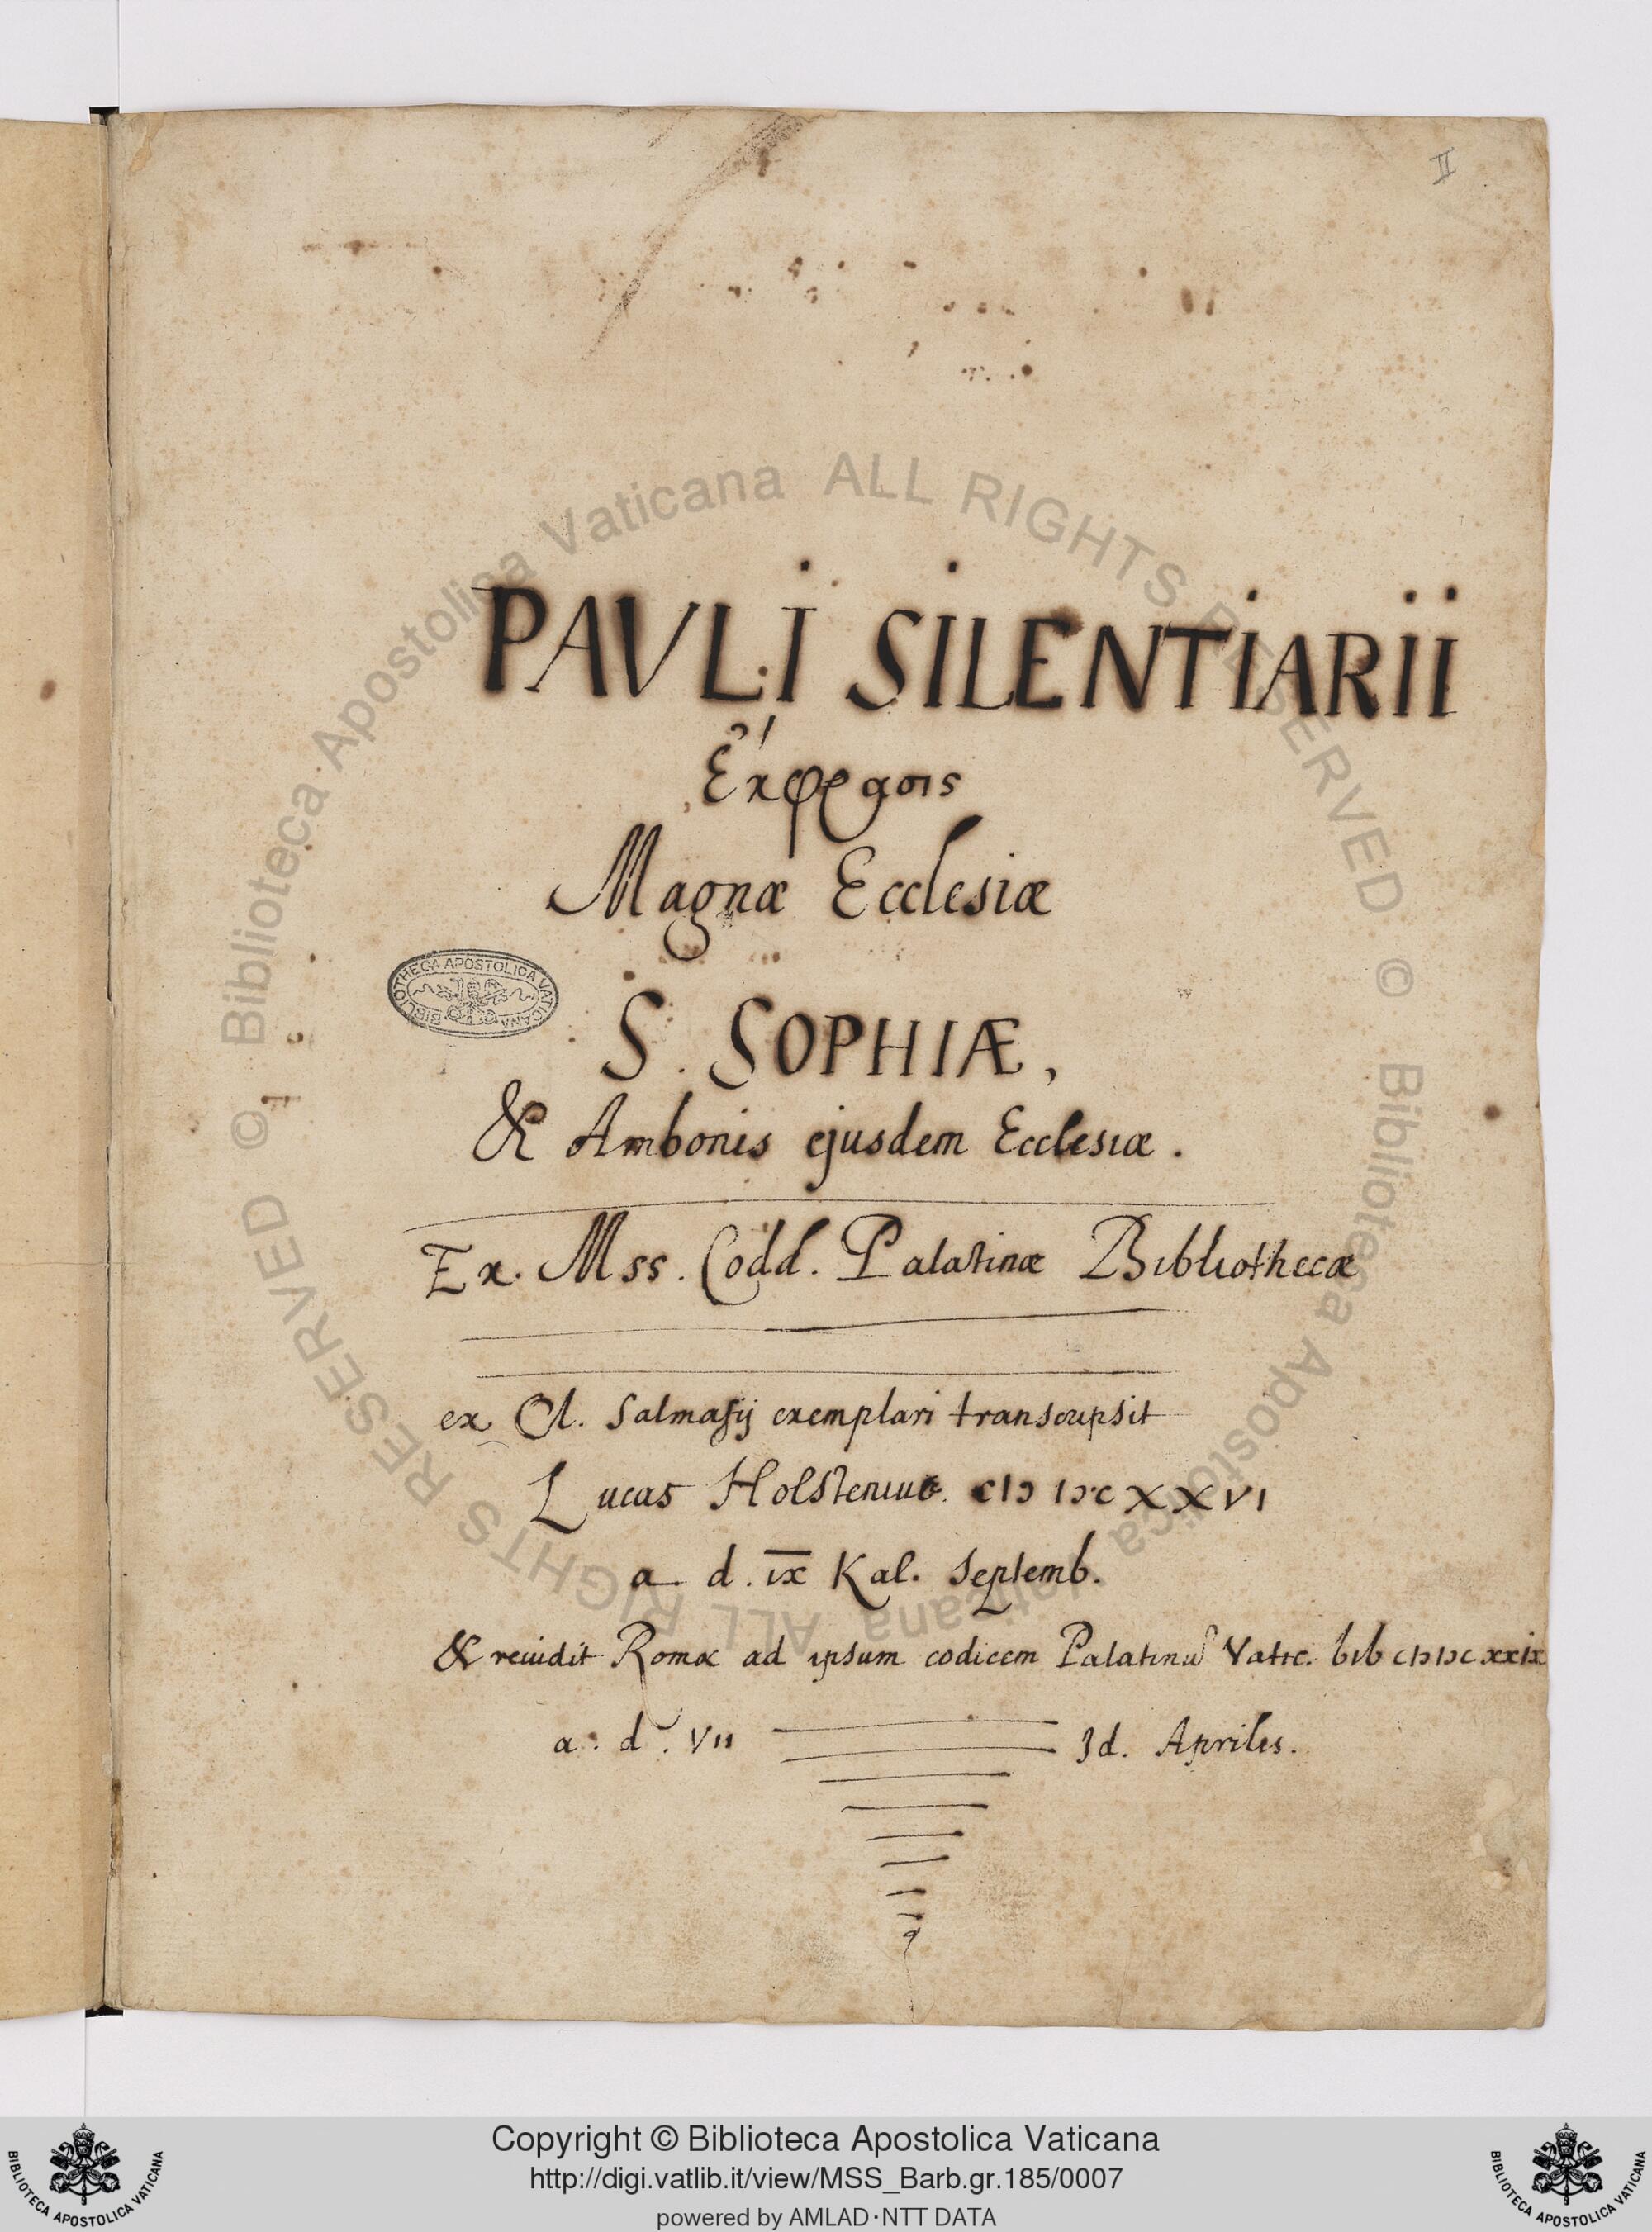 II
PAVLI SILENTIARII
Ἔκφρασις
Magnæ Ecclesiæ
S. SOPHIÆ,
& Ambonis ejusdem Ecclesiæ.
Ex. Mss. Codd. Palatinæ Bibliothecæ
ex Cl. Salmasij exemplari transcripsit
Lucas Holstenius. CIↃ IↃC XXVI
a d. IX Kal. Septemb.
& reuidit Romæ ad ipsum codicem Palatinū Vatic. bib CIↃ IↃC XXIX
a. d. VII Id. Apriles.
BIBLIOTHECA APOSTOLICA VATICANA
© Biblioteca Apostolica Vaticana ALL RIGHTS RESERVED © Biblioteca Apostolica Vaticana ALL RIGHTS RESERVED
Copyright © Biblioteca Apostolica Vaticana
http://digi.vatlib.it/view/MSS_Barb.gr.185/0007
powered by AMLAD·NTT DATA
BIBLIOTECA APOSTOLICA VATICANA
BIBLIOTECA APOSTOLICA VATICANA